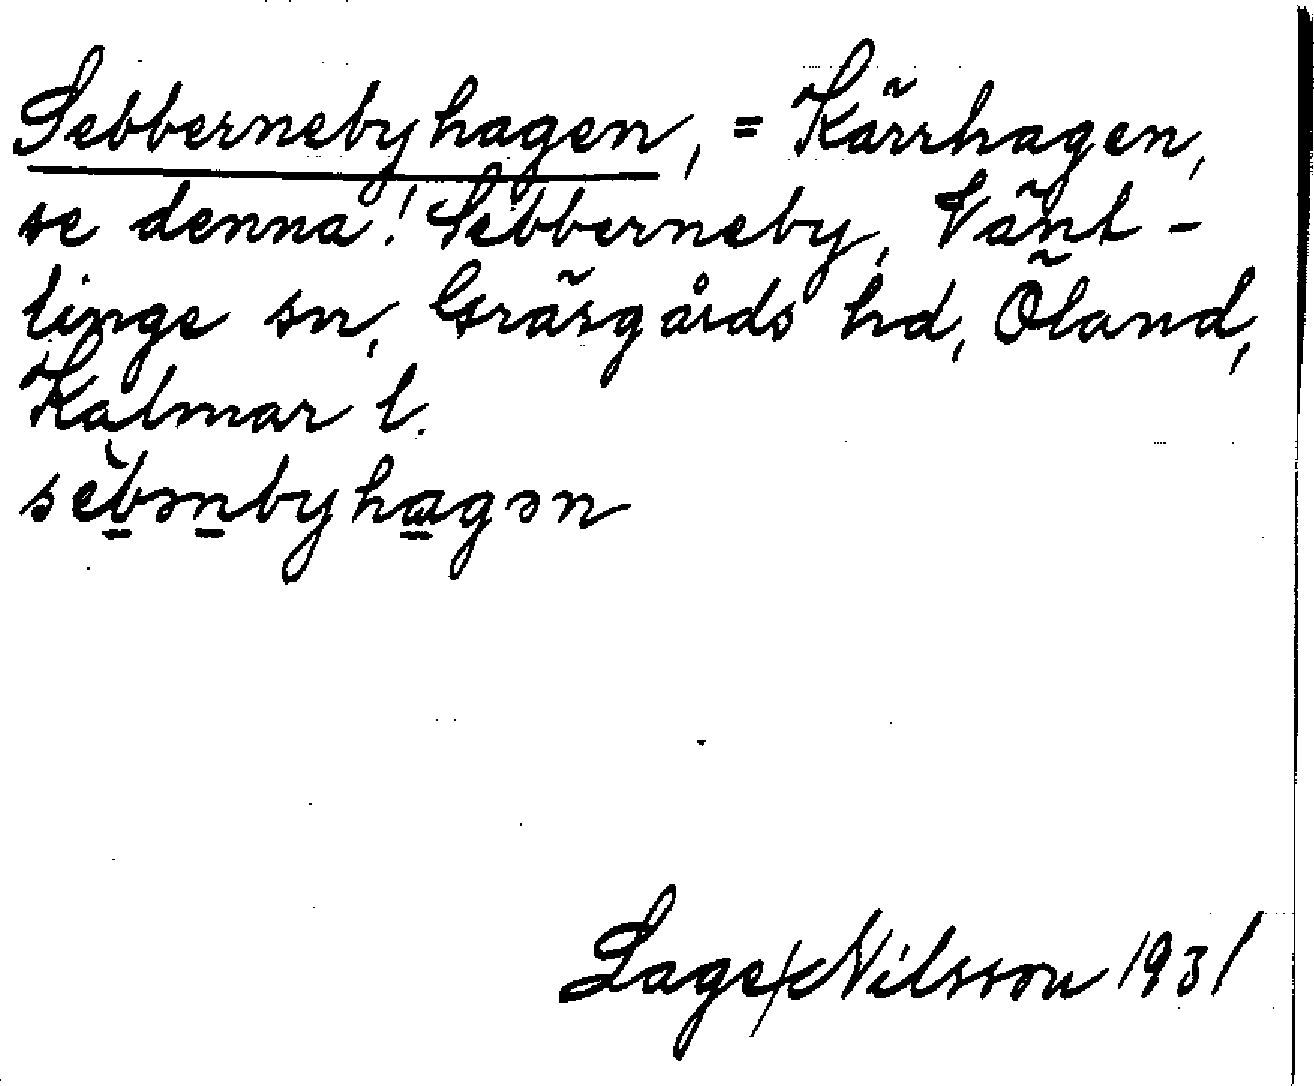 Sebbernebyhagen, = Kärrhagen,
se denna! Sebberneby, Vänt-
linge sn, Gräsgårds hd, Öland,
Kalmar l.
sèb̲ən̲byha̲gən
Lage Nilsson 1931